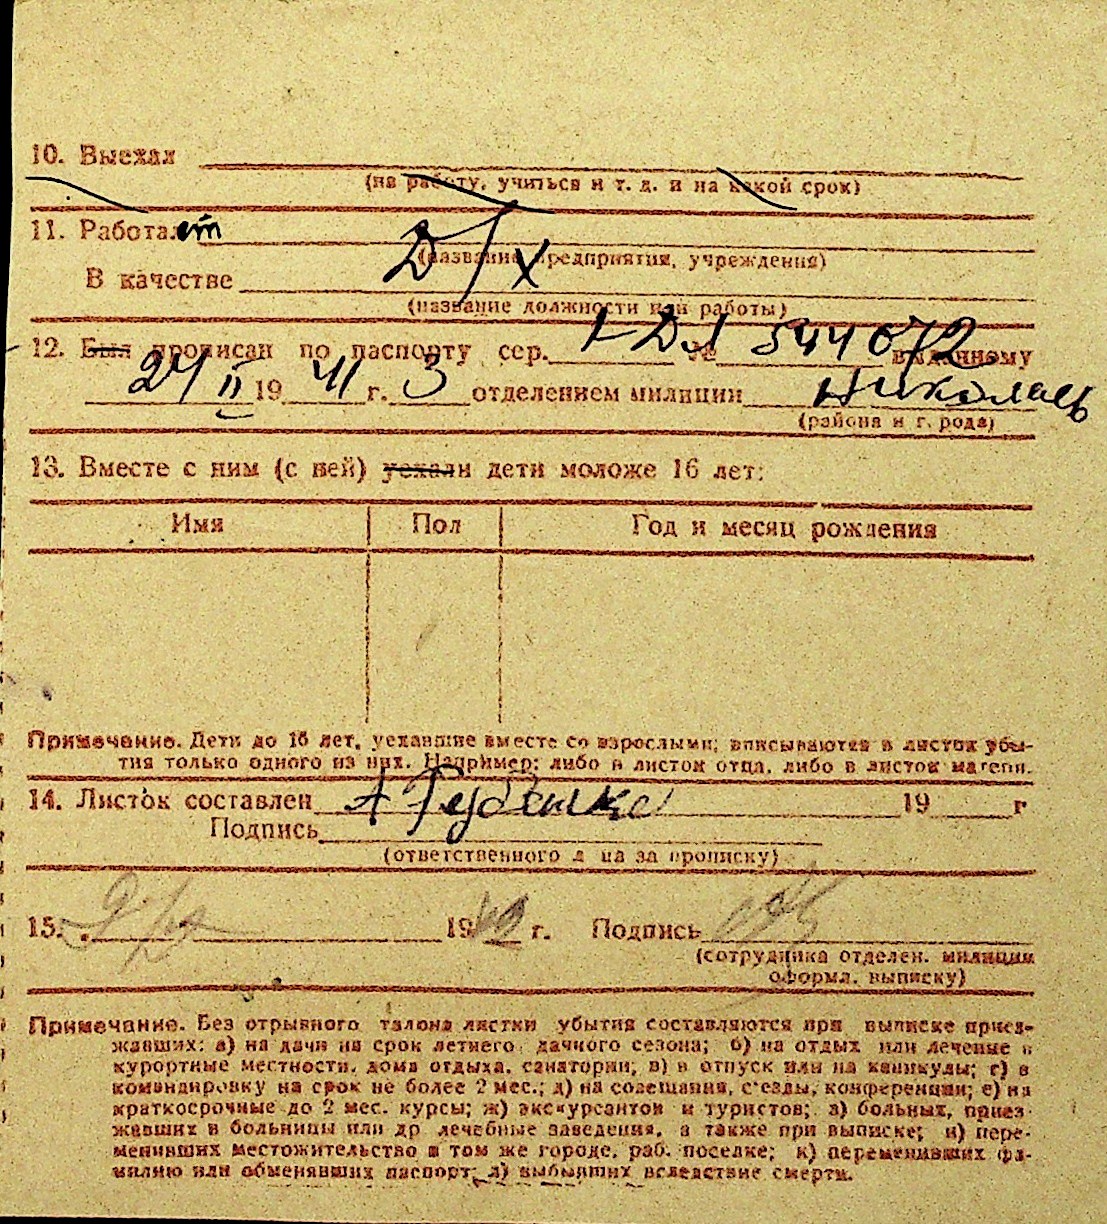 10. Выехал
(на работу, учиться и т. д. и на какой срок)
11. Работает Д/х
(название предприятия, учреждения)
В качестве
(название должности или работы)
12. Был прописан по паспорту сер. I-ДЛ № 544072 выданному
24/II 1941 г. 3 отделением милиции Николаев
(района и города)
13. Вместе с ним (с ней) уехали дети моложе 16 лет:
Имя Пол Год и месяц рождения
Примечание. Дети до 16 лет, уехавшие вместе со взрослыми; вписываются в листок убы-
тия только одного из них. Например: либо в листок отца, либо в листок матери.
14. Листок составлен 19 г
Подпись
(ответственного лица за прописку)
15. 19 г. Подпись
(сотрудника отделен. милиции
оформл. выписку)
Примечание. Без отрывного талона листки убытия составляются при выписке приез-
жавших: а) на дачи на срок летнего дачного сезона; б) на отдых или лечение в
курортные местности, дома отдыха, санатории; в) в отпуск или на каникулы; г) в
командировку на срок не более 2 мес.; д) на совещания, съезды, конференции; е) на
краткосрочные до 2 мес. курсы; ж) экскурсантов и туристов; з) больных, приез-
жавших в больницы или др лечебные заведения, а также при выписке; и) пере-
менивших местожительство в том же городе, раб. поселке; к) переменивших фа-
милию или обменявших паспорт; л) выбывших вследствие смерти.